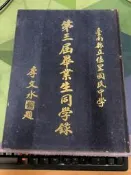 臺南縣立佳里國民中學
第三屆畢業生同學錄
李文水題